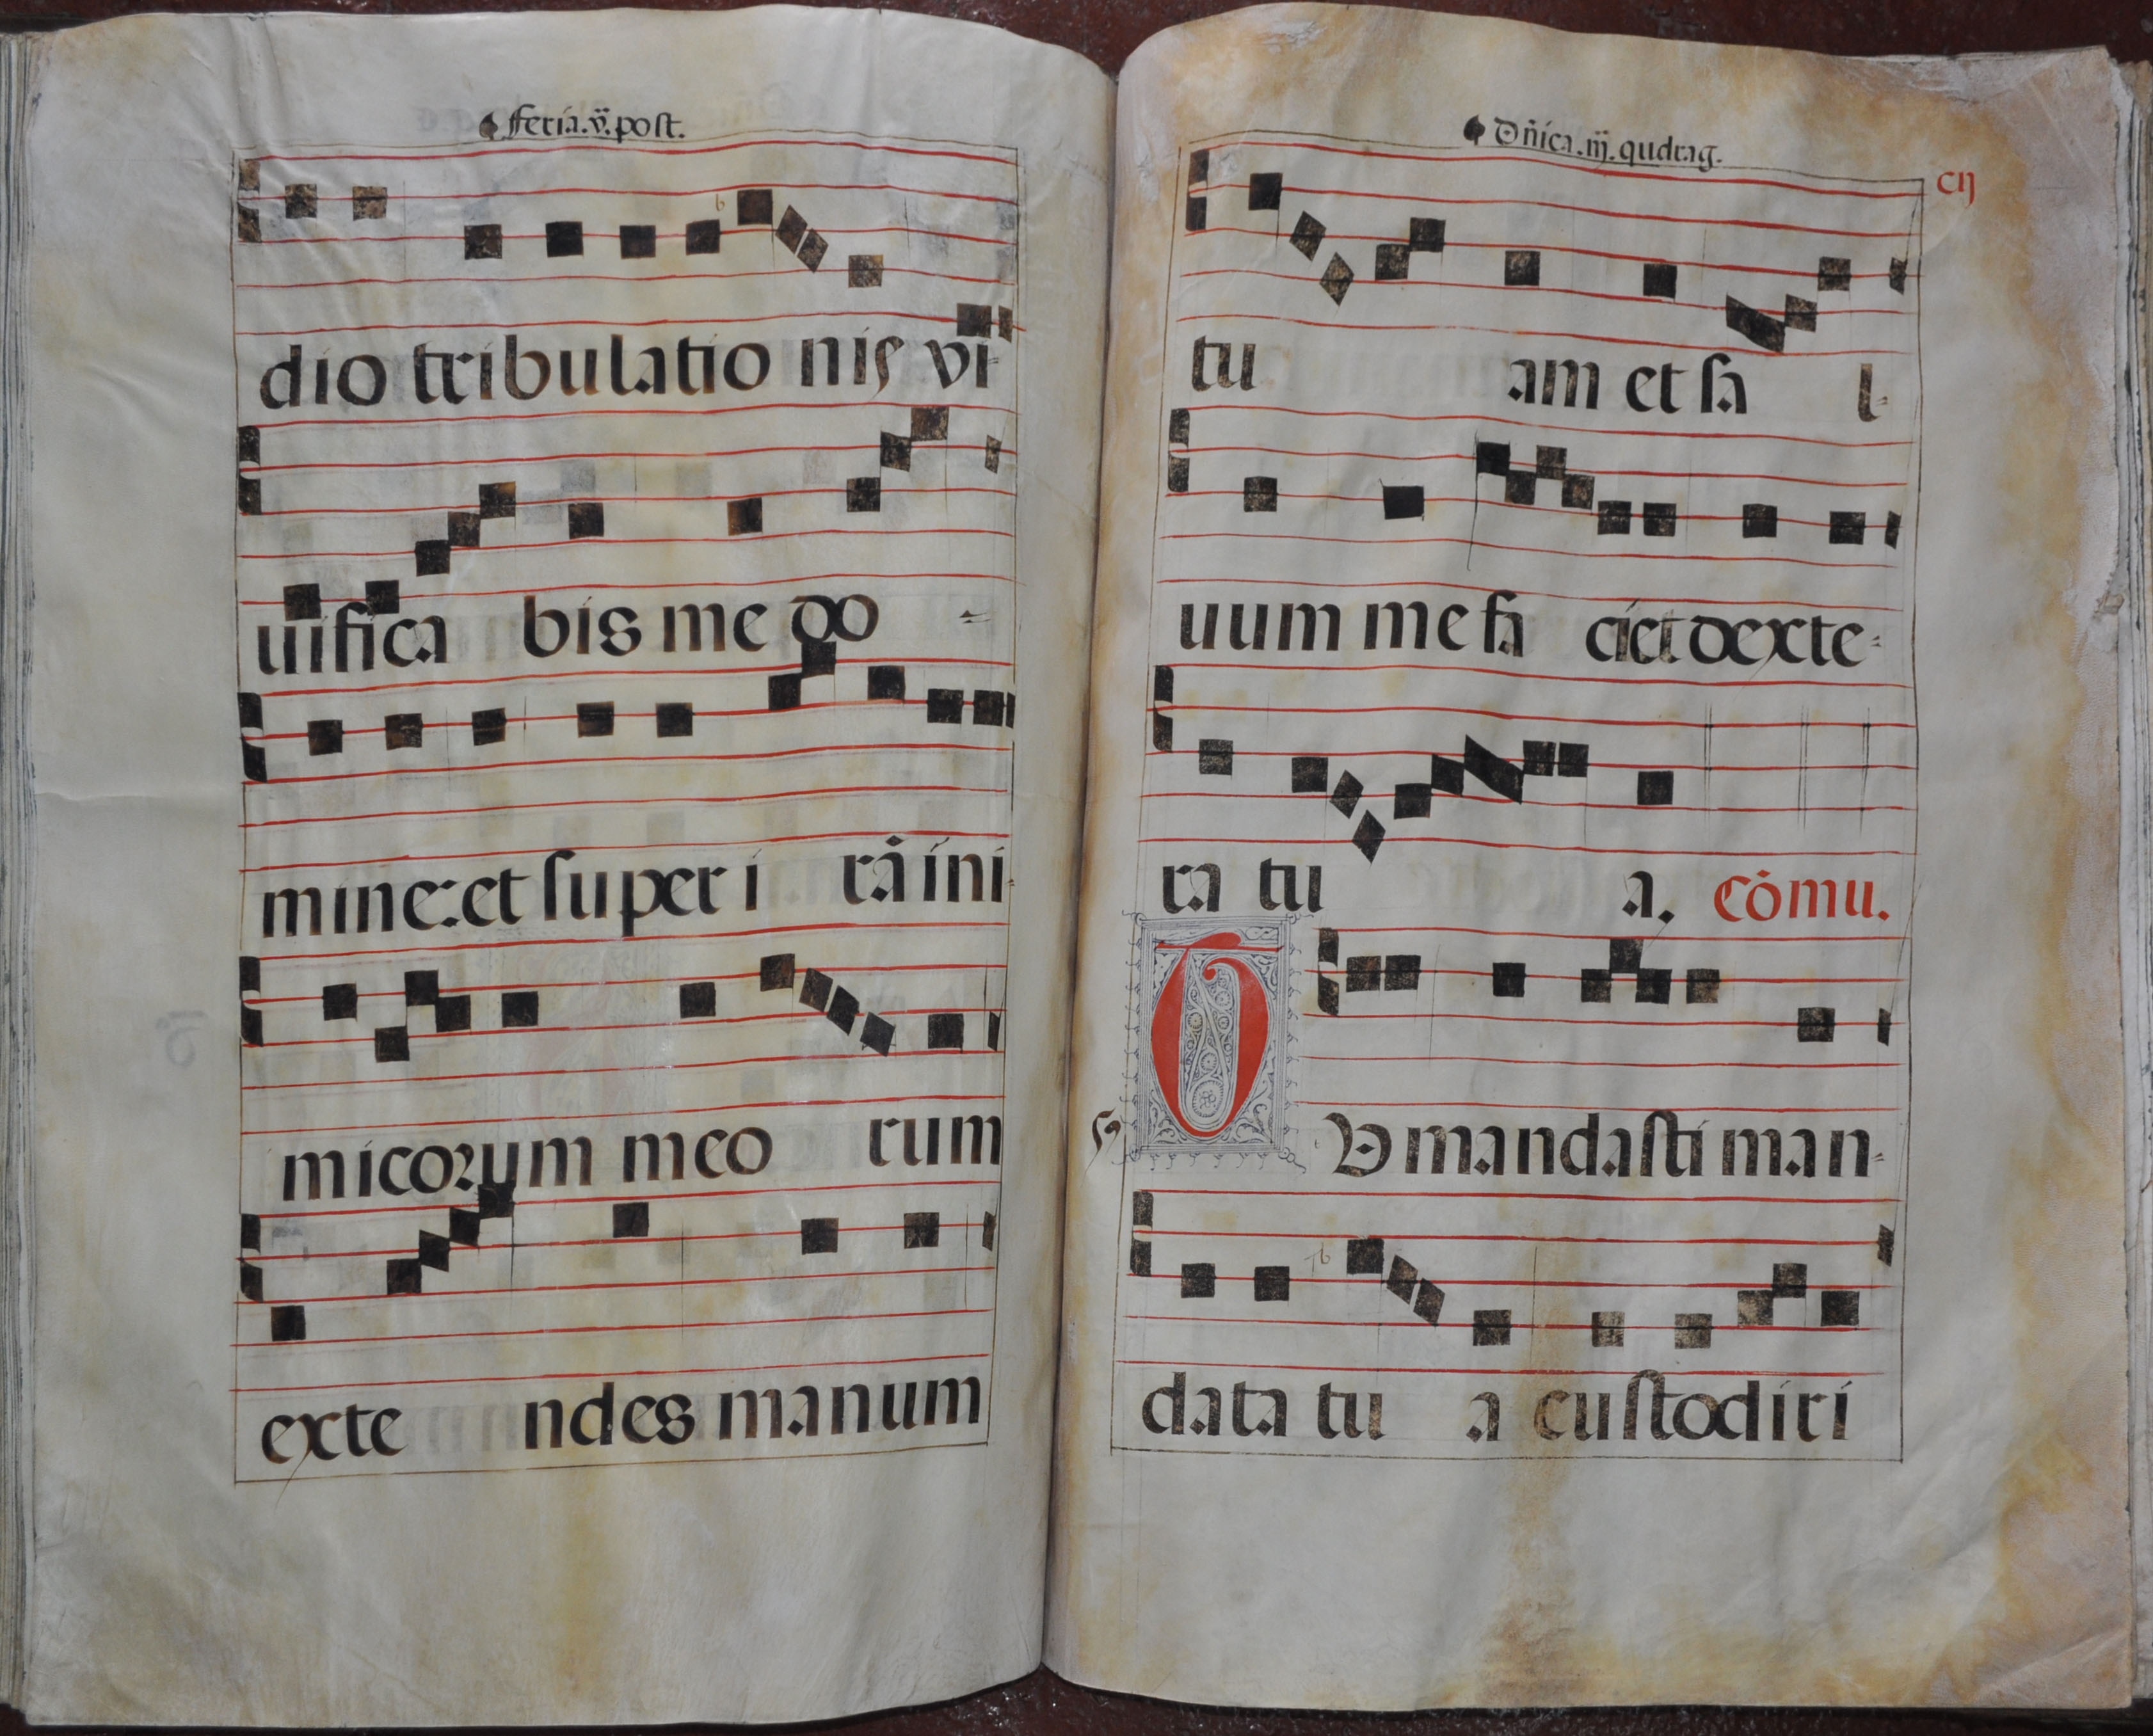 feria.v.post.
dio tribulatio nis vi-
uifica bis me do -
mine: et super i rā ini-
micorum meo rum
exte ndes manum
Dñica.iij.qudrag.
cij
tu am et sa l-
uum me fa ciet dexte-
ra tu a. Cōmu.
TV mandasti man-
data tu a custodiri